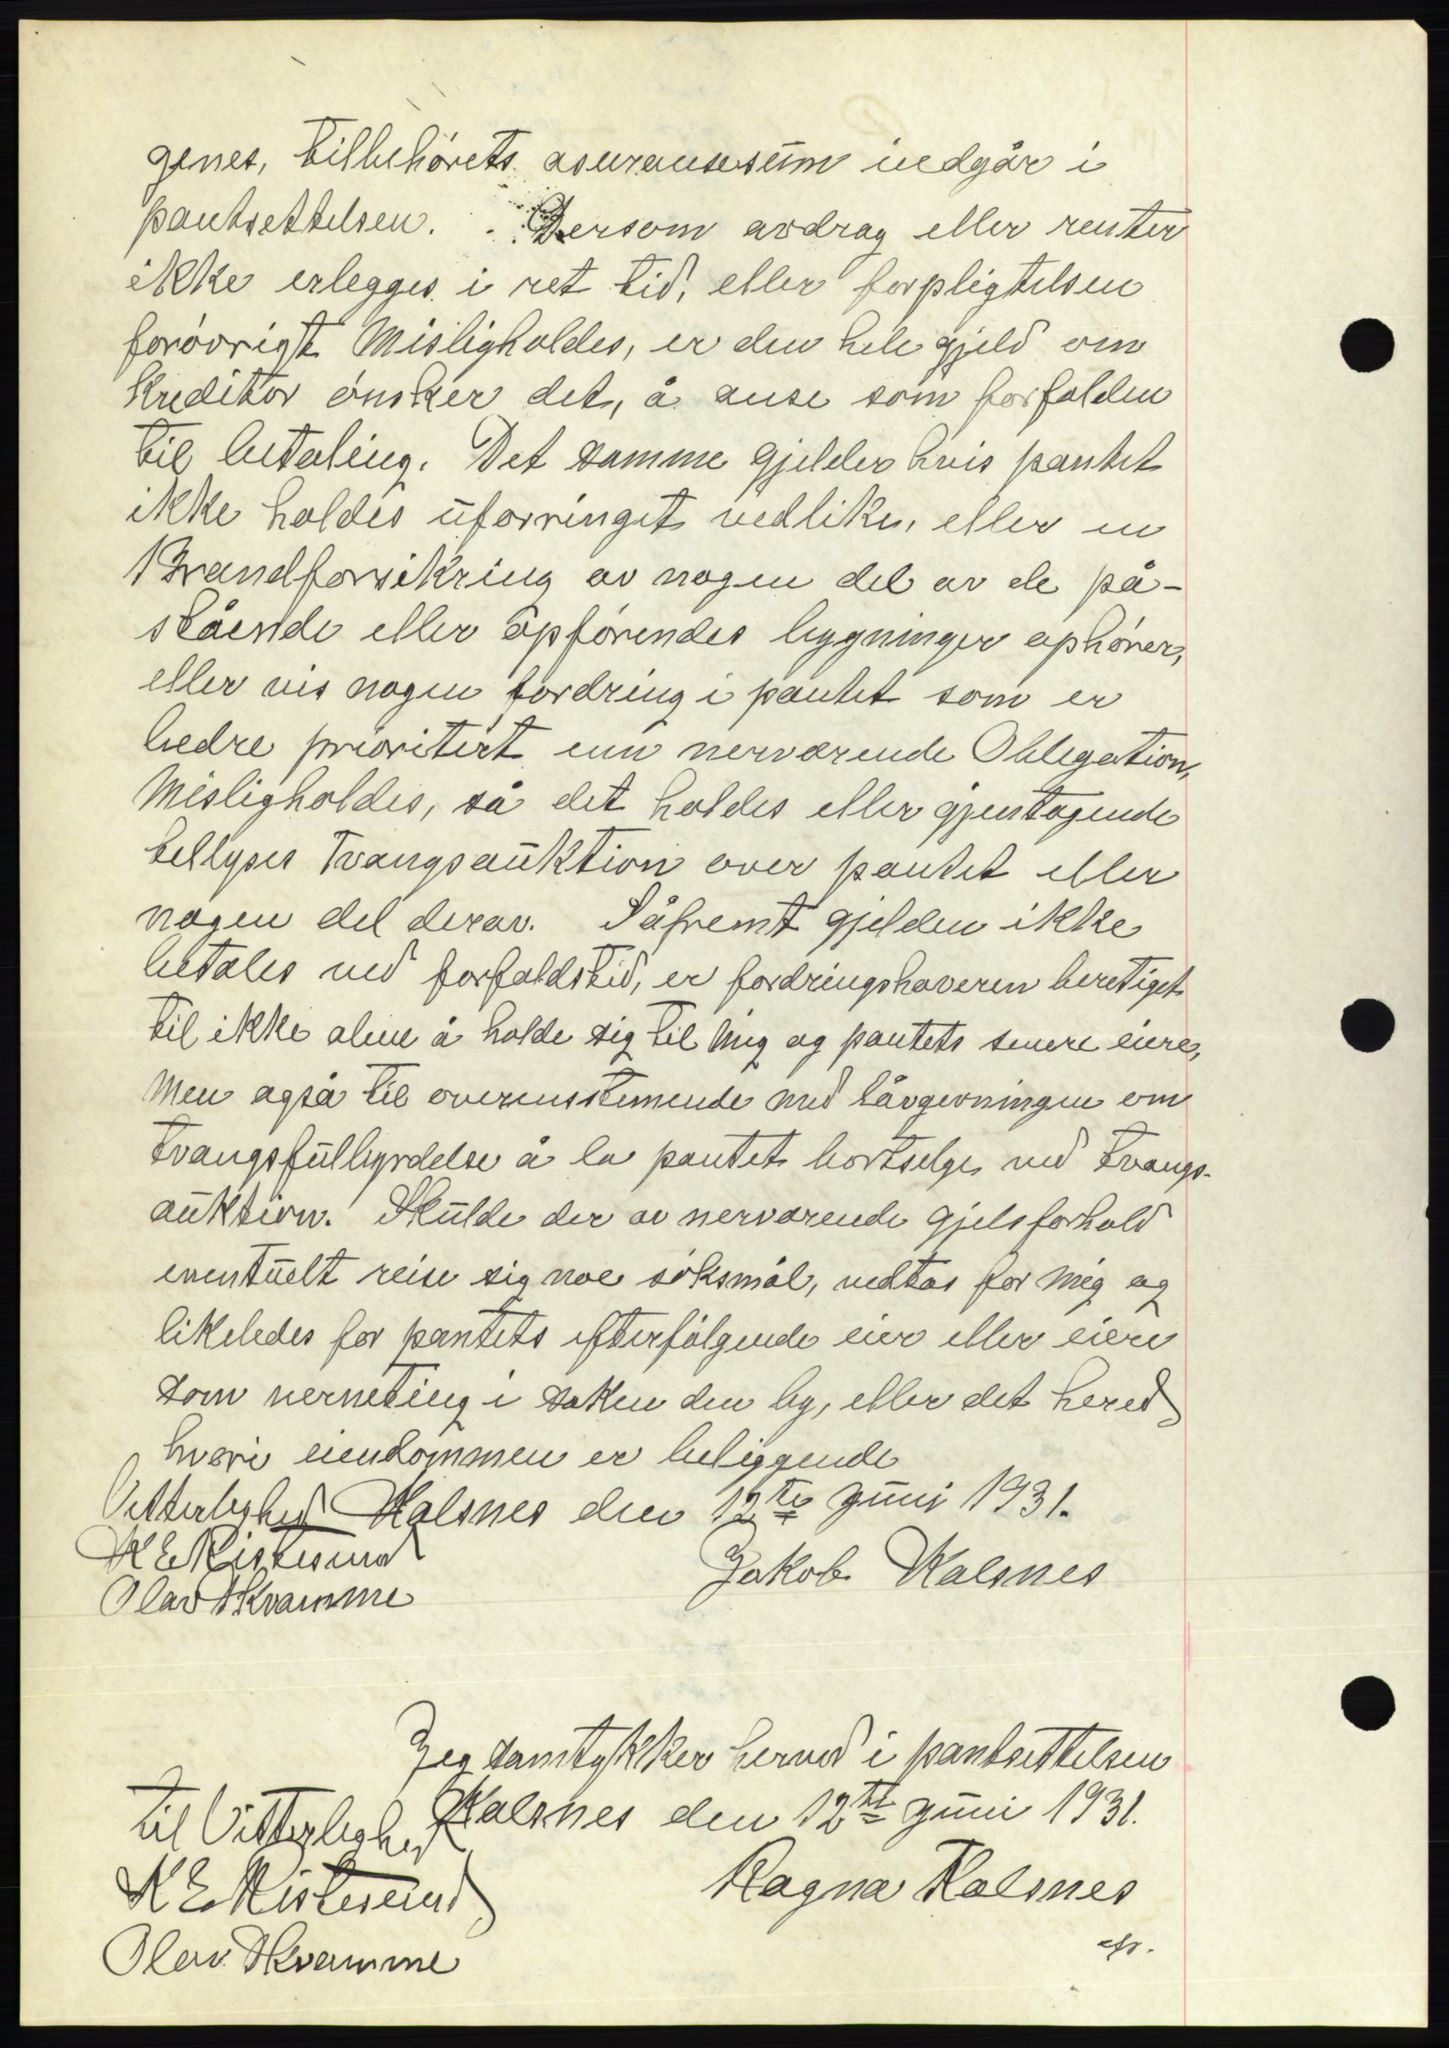 genes, tilbehørets asuransesum indgår i
pantsettelsen. Dersom avdrag eller renter
ikke erlegges i ret tid, eller forpligtelsen
forøvrigt Misligholdes, er den hele gjeld om
Kreditor ønsker det, å anse som forfalden
til betaling. Det samme gjelder hvis pantet
ikke holdes uforringet vedlike, eller en
Brandforsikring av nogen del av de på-
stående eller opførendes bygninger ophører,
eller vis nogen fordring i pantet som er
bedre prioritert enn nerværende Obligation,
Misligholdes, så det holdes eller gjentagende
tellyses Tvangsauktion over pantet eller
nogen del derav. Såfremt gjelden ikke
betales ved forfaldstid, er fordringshaveren beretiget
til ikke alene å holde sig til Mig og pantets senere eiere,
Men også til overensstemende med lävgevningen om
tvangsfullbyrdelse å la pantet bortselge ved tvangs-
auktion. Skulde der av nerværende gjelsforhold
eventuelt reise sig noe søksmål, vedtas for Mig og
likeledes for pantets efterfølgende eier eller eiere
som verneting i saken den by, eller det hered
hvori eiendommen er beliggende
Vitterlighed Kalsnes den 12te Juni 1931.
K E Ristesund Jakob Kalsnes
Olav Kvamme
Jeg samtykker herved i pantsettelsen
til Vitterlighed Kalsnes den 12te Juni 1931.
K E Ristesund Ragna Kalsnes
Olav Kvamme